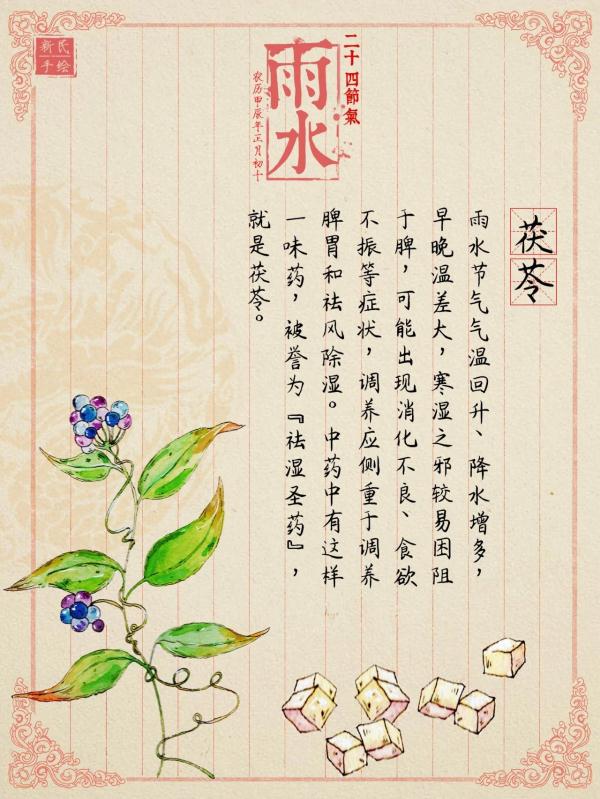 新民
手绘
二十四節氣
雨水
农历甲辰年正月初十
茯苓
雨水节气气温回升、降水增多，
早晚温差大，寒湿之邪较易困阻
于脾，可能出现消化不良、食欲
不振等症状，调养应侧重于调养
脾胃和祛风除湿。中药中有这样
一味药，被誉为『祛湿圣药』，
就是茯苓。